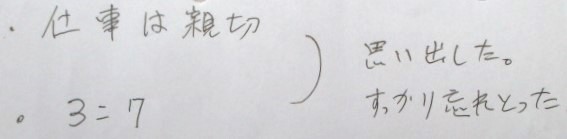 ・仕事は親切
。3=7
思い出した。
すっかり忘れとった